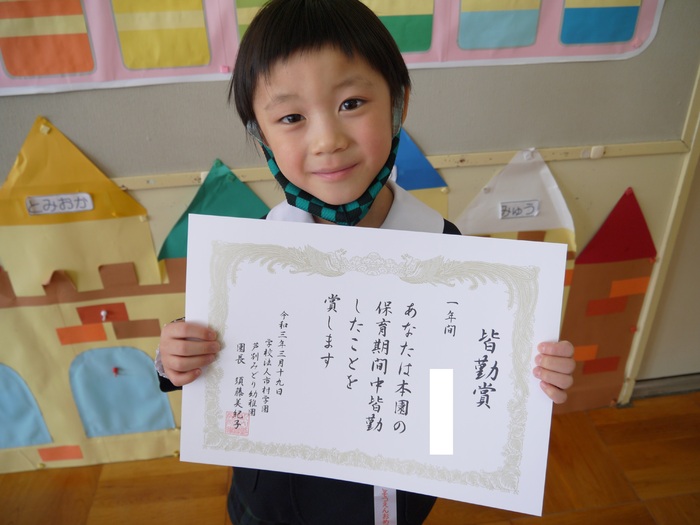 とみおか
みゅう
皆勤賞
一年間
あなたは本園の
保育期間中皆勤
したことを
賞します
令和三年三月十九日
学校法人市村学園
芦別みどり幼稚園
園長 須藤美紀子